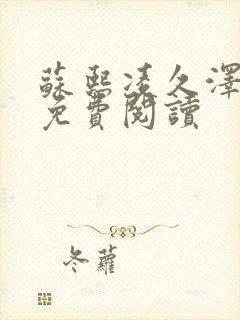 蘇熙凌久澤
免費閱讀
冬蘿